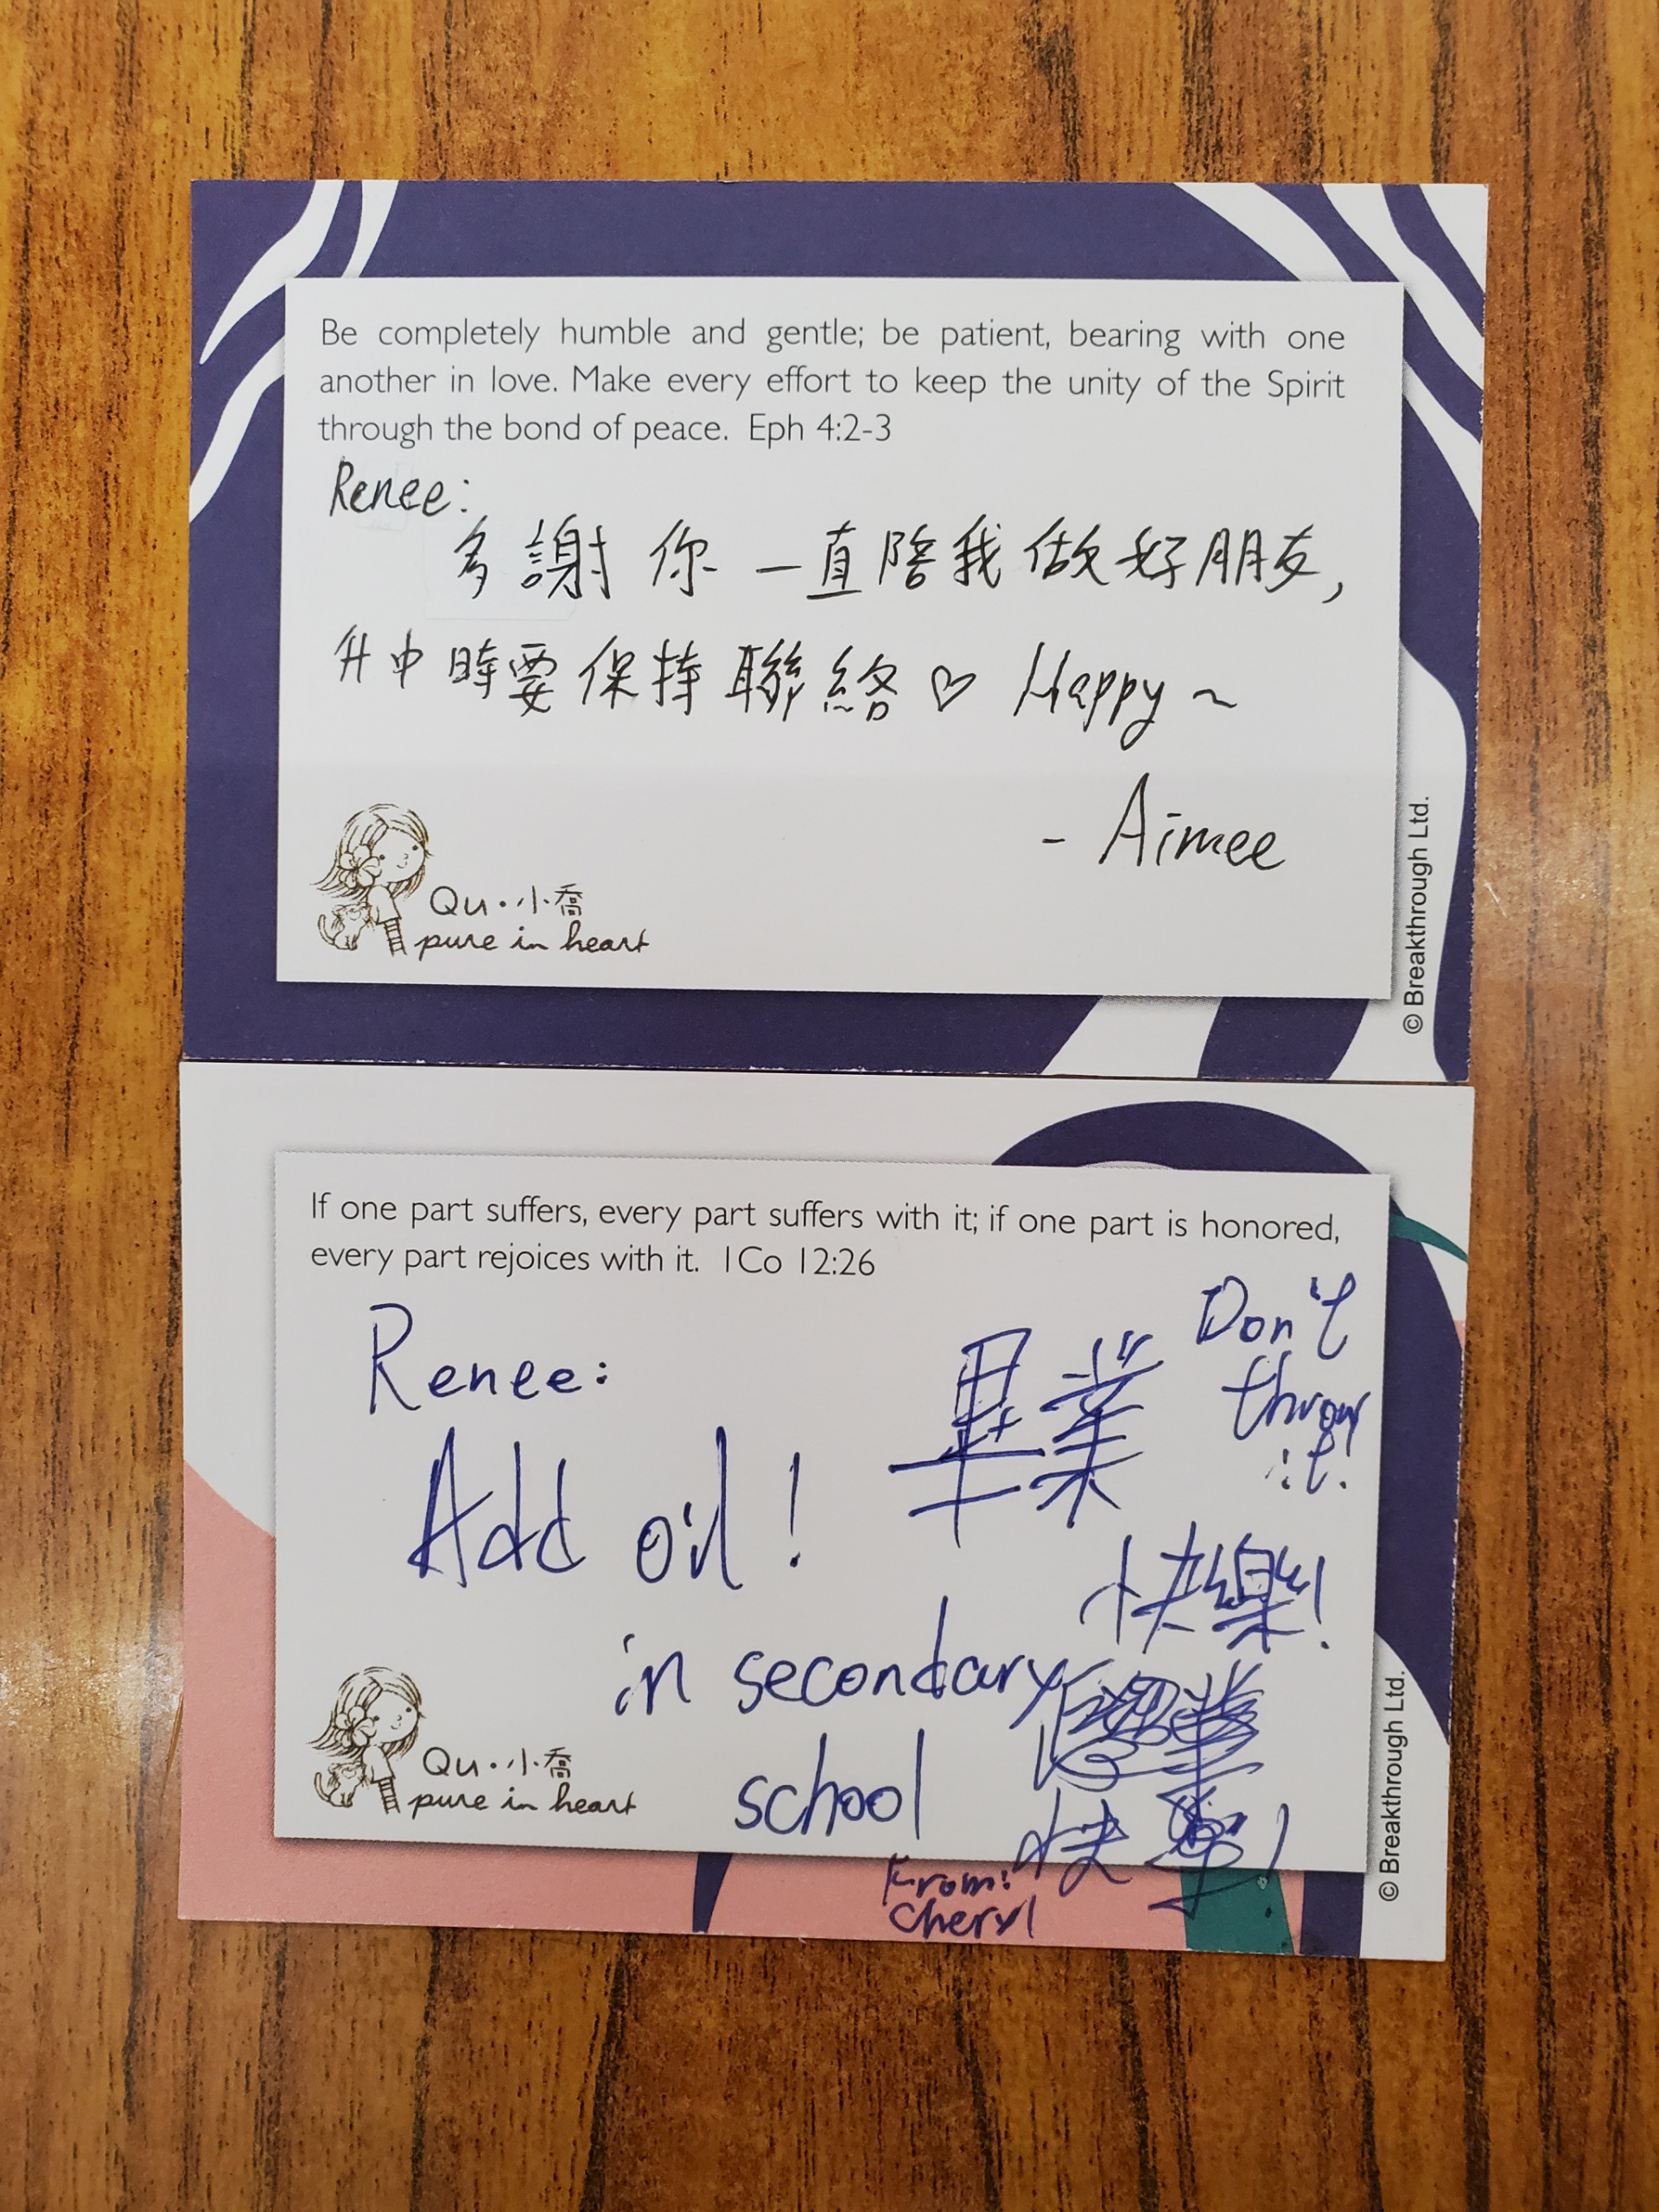 Be completely humble and gentle; be patient, bearing with one
another in love. Make every effort to keep the unity of the Spirit
through the bond of peace. Eph 4:2-3
Renee:
多謝你一直陪我做好朋友,
升中時要保持聯絡♡ Happy~
- Aimee
Qu·小喬
pure in heart
© Breakthrough Ltd.
If one part suffers, every part suffers with it; if one part is honored,
every part rejoices with it. 1Co 12:26
Renee:
Add oil!
in secondary
school
畢業
快樂!
Don't
throw
it!
快
From:
Cheryl
Qu·小喬
pure in heart
© Breakthrough Ltd.